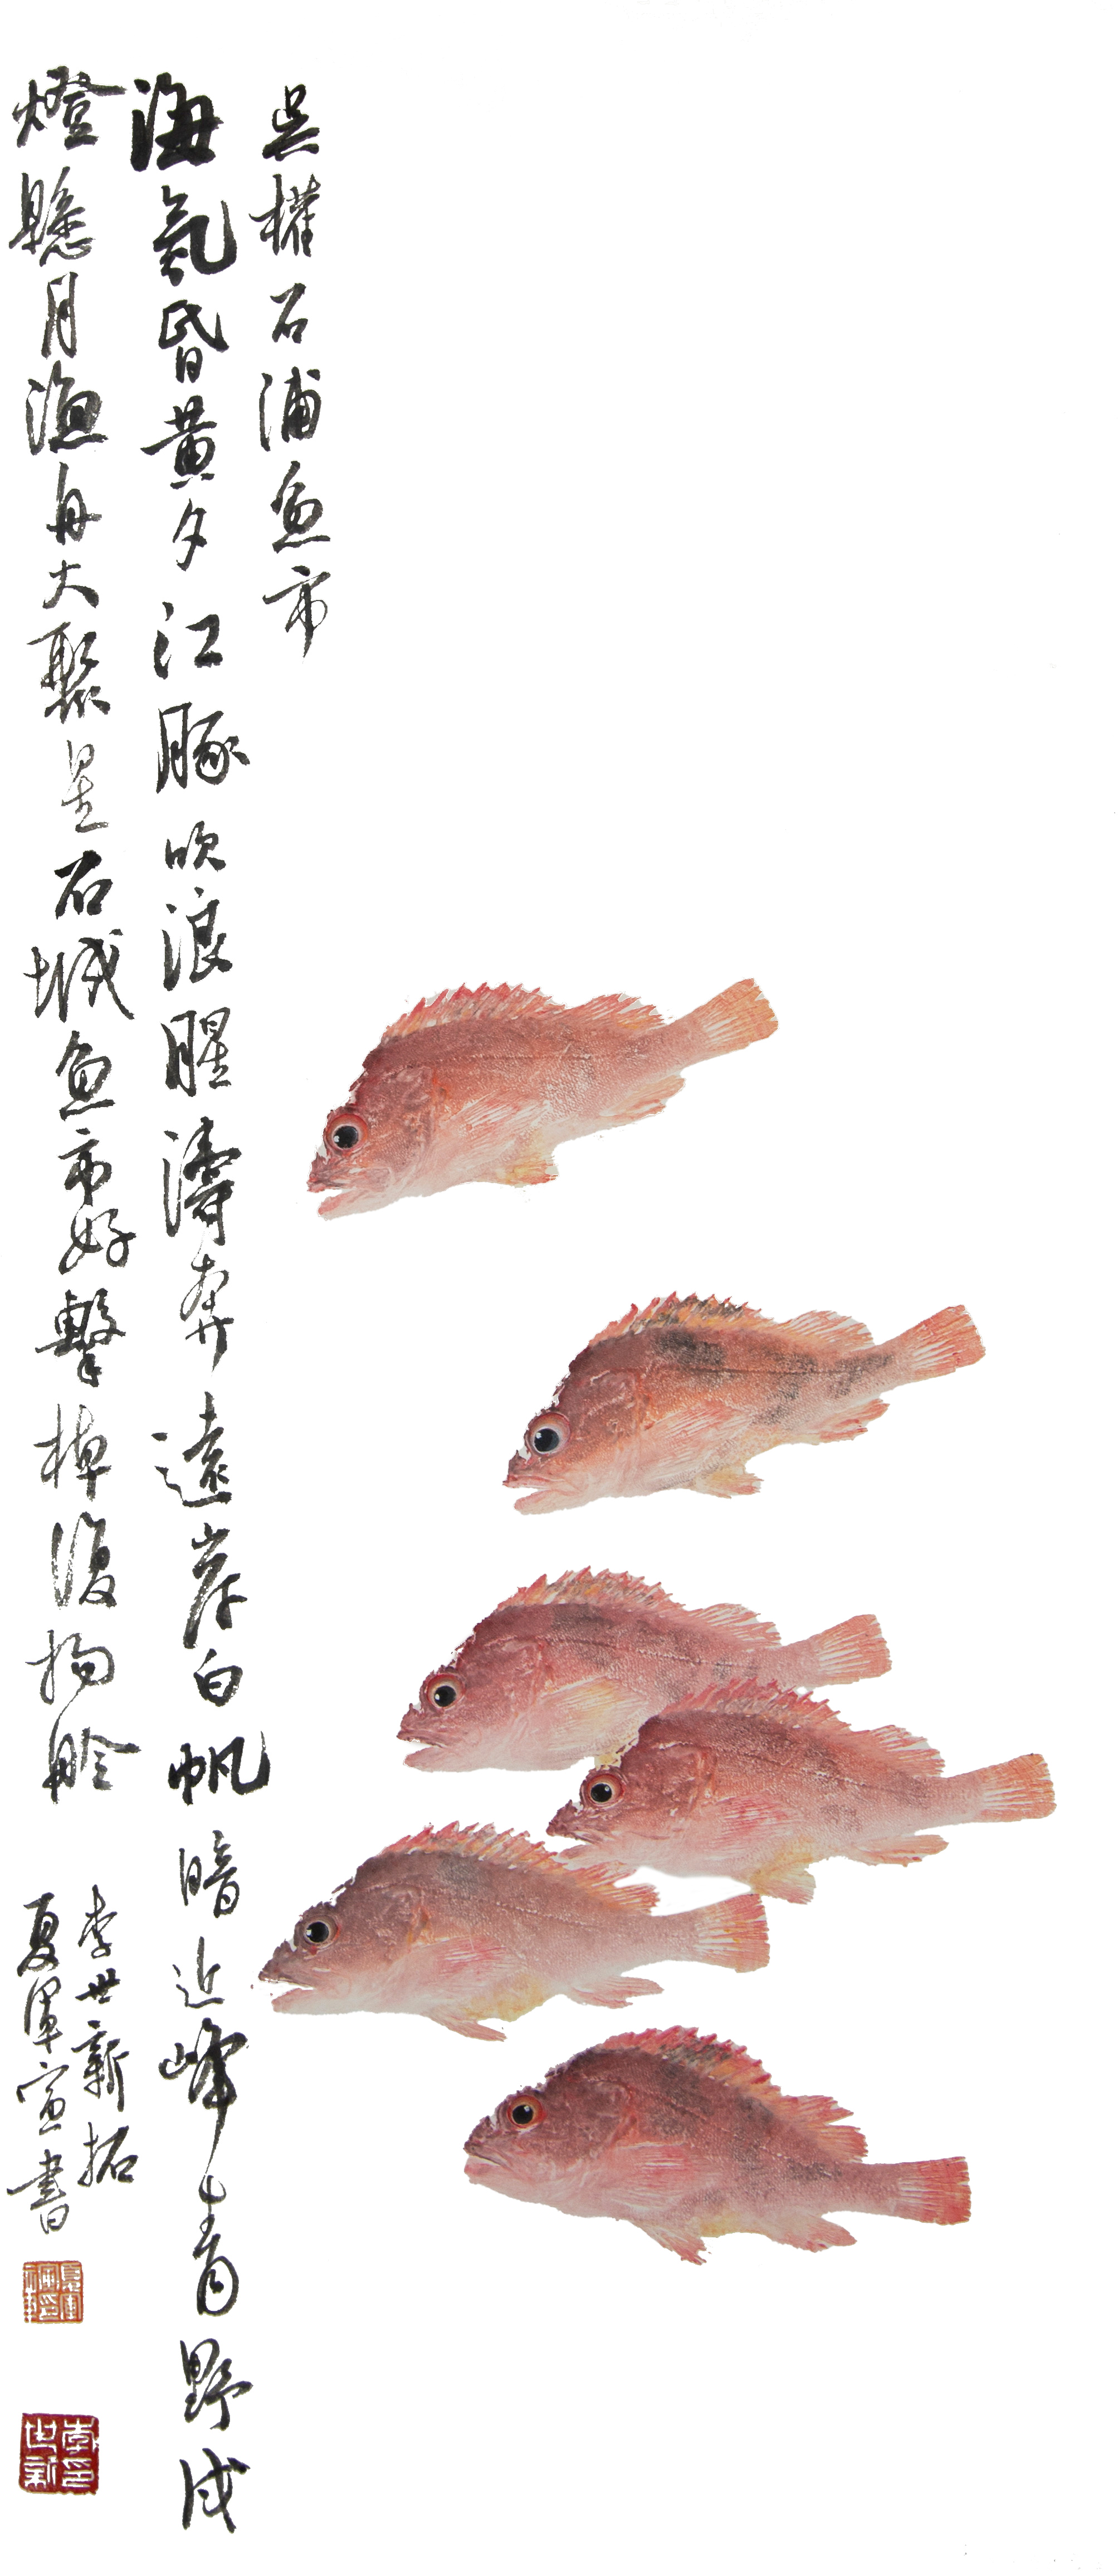 吳權石浦魚市
海氣昏黃夕江豚吹浪腥濤奔遠岸白帆暗近峰青野戍
燈懸月漁舟大聚星石城魚市好擊棹復舲
李世新拓
夏書
李世新印